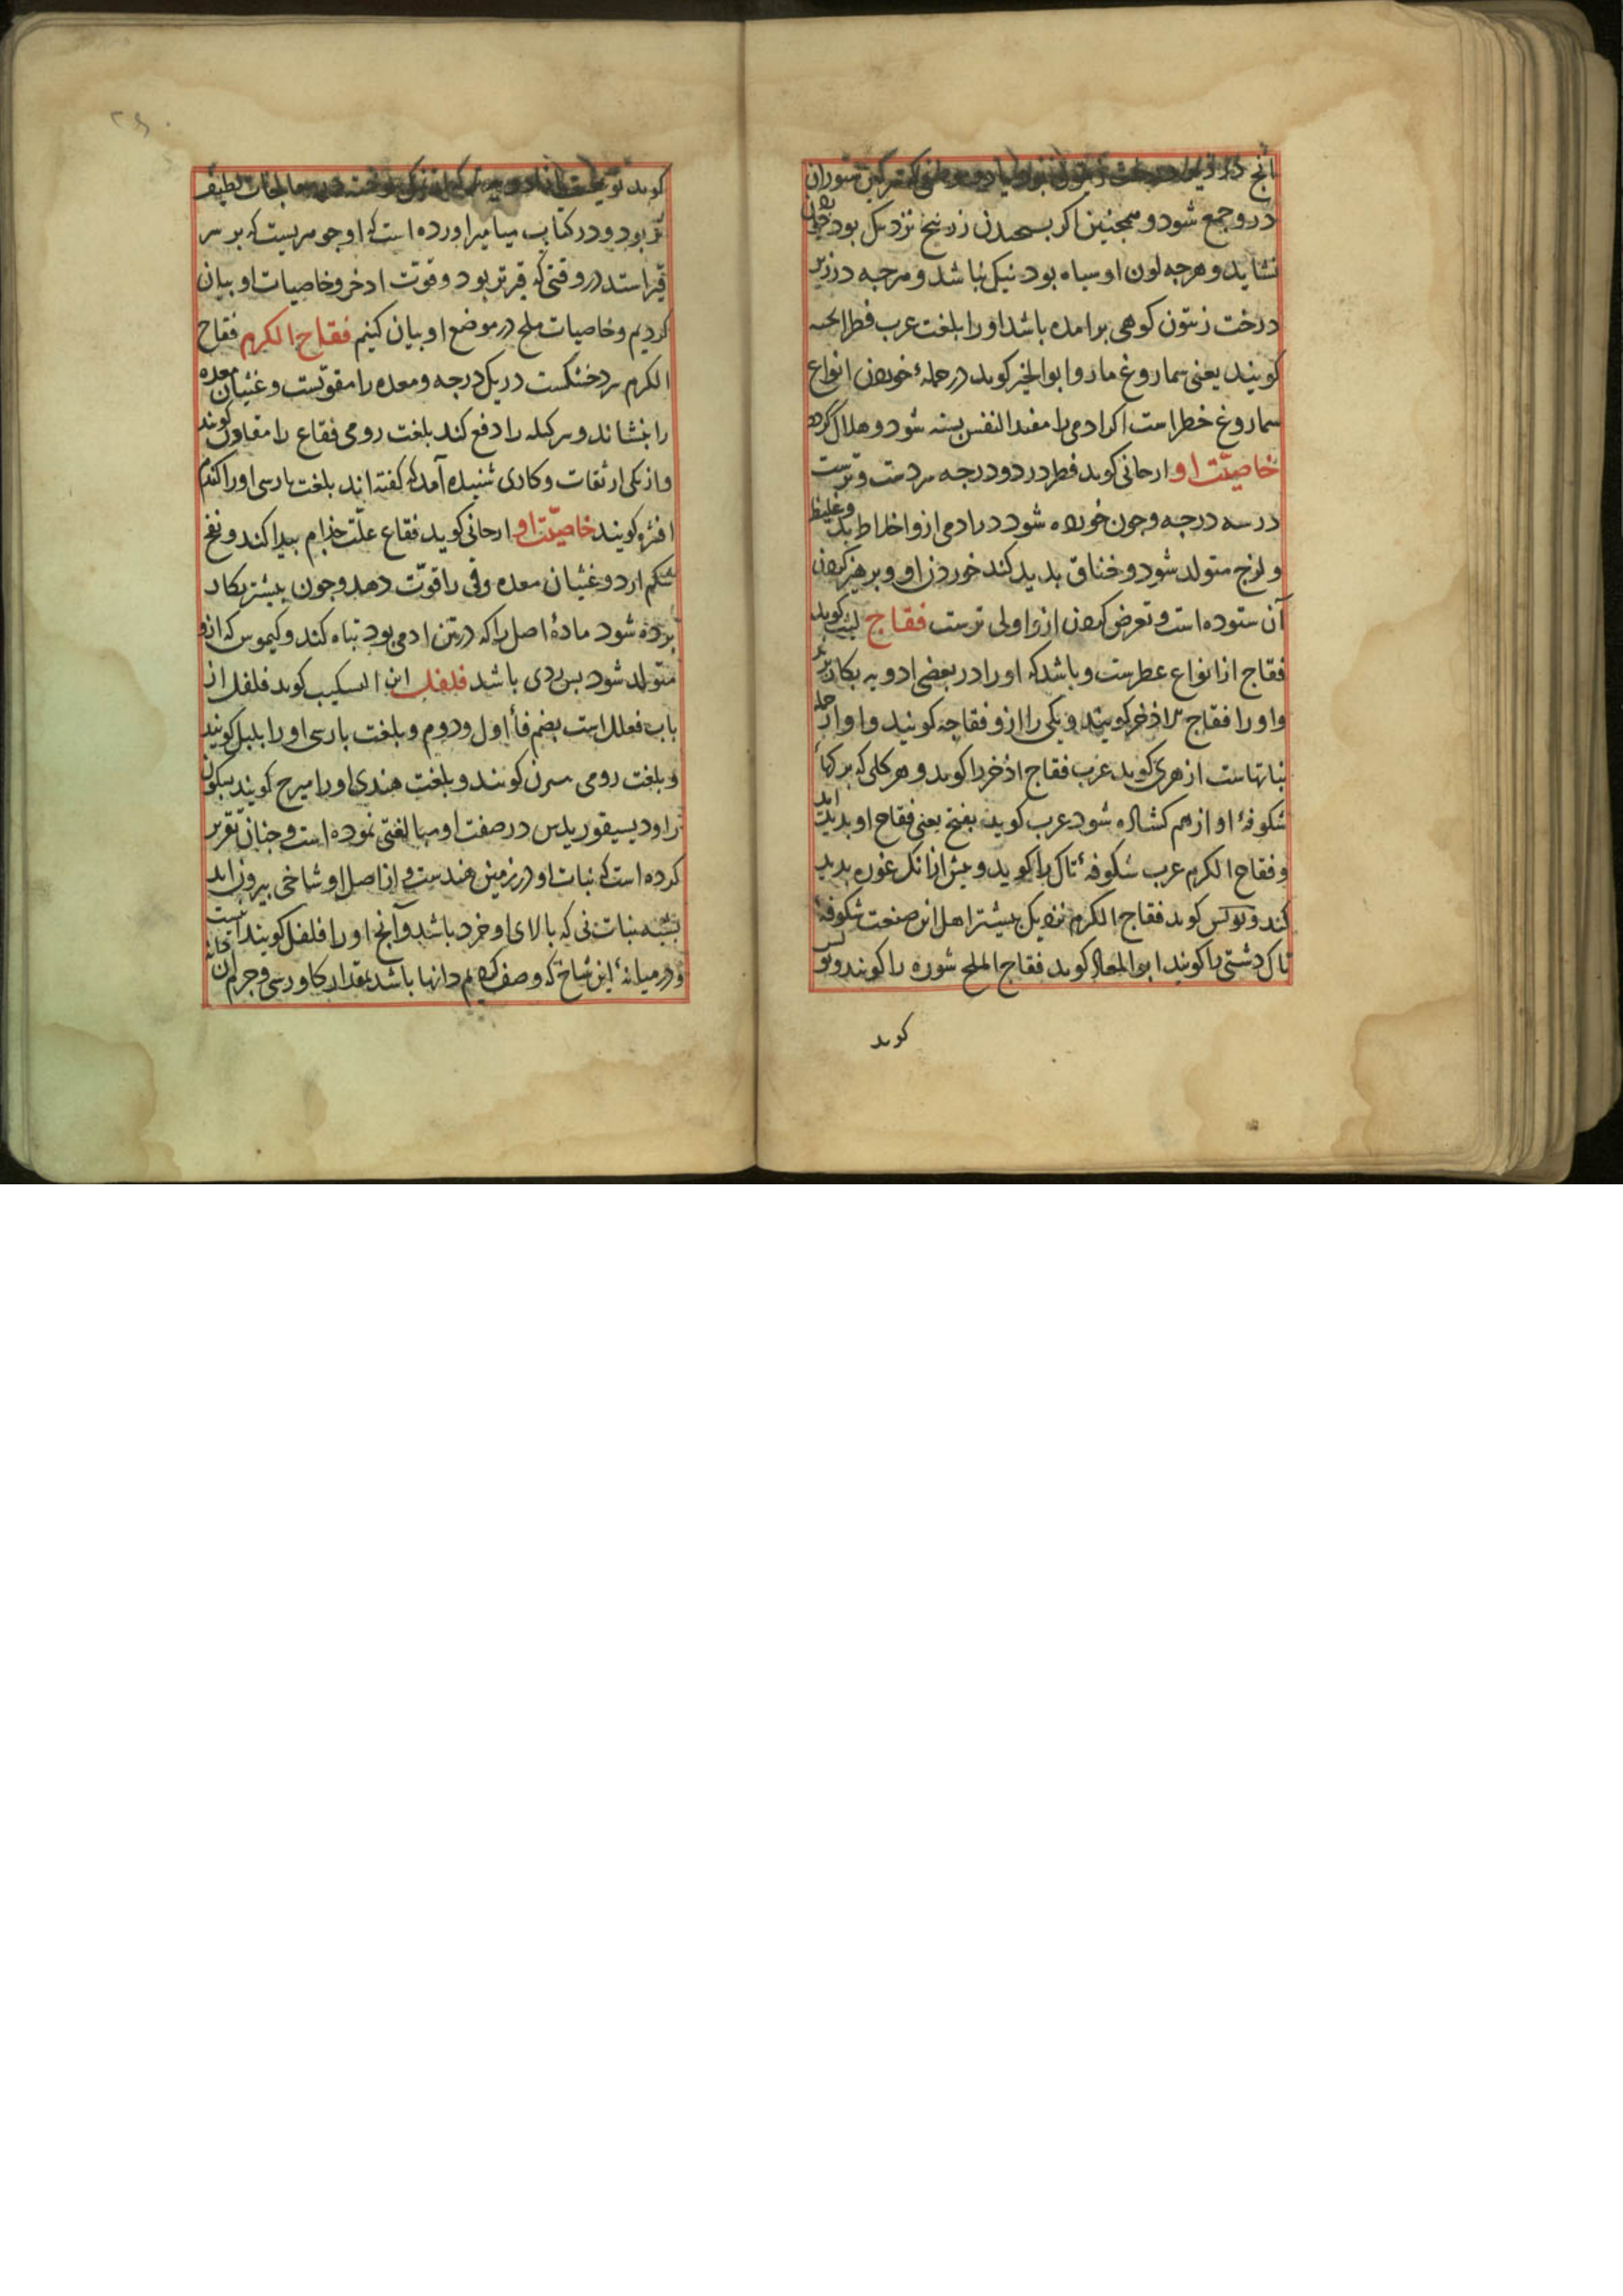 در و جمع شود و همچنین اکر بسحیدن زرنیخ نزدیک بود
نشاید و هرجه لون او سیاه بود نیک نباشد و هرجه در زیر
درخت زیتون کوهی برامده باشد او را بلغت عرب فطر الحیه
کویند یعنی سماروغ مار و ابو الخیر کوید در جملهٔ خوردن انواع
سماروغ خطر است اکر ادمی را مفید النفس بسته شود و هلاک کردد
خاصیّت او ارجانی کوید فطر در دو درجه سردست و ترست
در سه درجه و جون خورده شود در ادمی ازو اخلاط بد و غلیظ
و لزج متولد شود و خناق بدید کند خوردن او و برهیز کردن
آن ستوده است و تعرض کردن ازو اولی ترست فقاح لیث کوید
فقاح از انواع عطرست و باشد که او را در بعضی ادویه بکار برند
و او را فقاح اذخر کویند و یکی را ازو فقاحه کویند و او از جمله
نباتهاست ازهری کوید عرب فقاح اذخر را کوید و هر کلی که برکهاء
شکوفهٔ او از هم کشاده شود عرب کوید بفتح یعنی فقاح او بدید امد
و فقاح الکرم عرب شکوفهٔ تاک را کوید و بیش از انک غوره بدید
کند و بولس کوید فقاح الکرم نزدیک بیشتر اهل این صنعت شکوفهٔ
تاک دشتی را کویند ابو المعالی کوید فقاح الملح شوره را کویند و بولس
کوید
تر بود و در کتاب میامیر اورده است که او جوهریست که بر سر
قیر استد در وقتی که قیر تر بود و قوّت اذخر و خاصیات او بیان
کردیم و خاصیات ملح در موضع او بیان کنیم فقاح الکرم فقاح
الکرم سرد خشکست در یک درجه و معده را مقوّیست و غثیان معده
را بنشاند و سر کیله را دفع کند بلغت رومی فقاع را مقاون کویند
و از یکی از ثقات و کادی شنیده آمد که کفته اند بلغت بارسی او را کندم
افشره کویند خاصیّت او ارجانی کوید فقاع علّت جذام بیدا کند و نفخ
شکم ارد و غثیان معده و قی را قوّت دهد و جون بیشتر بکار
برده شود مادهٔ اصل را که در تن ادمی بود تباه کند و کیموس که ازو
متولد شود بس ردی باشد فلفل ابن السکیت کوید فلفل از
باب فعلل است بضم فاء اول و دوم و بلغت بارسی او را بلبل کویند
و بلغت رومی سرن کویند و بلغت هندی او را میرح کویند بسکون
را و دیسیقوریدس در صفت او مبالغتی نموده است و جنان تقریر
کرده است که نبات او در زمین هندست و از اصل او شاخی بیرون اید
بشبه نبات نی که بالای او خرد باشد و آنج او را فلفل کویند انست
و در میانهٔ این شاخ که وصف کردیم دانها باشد بمقدار کاورسی و جرم ان